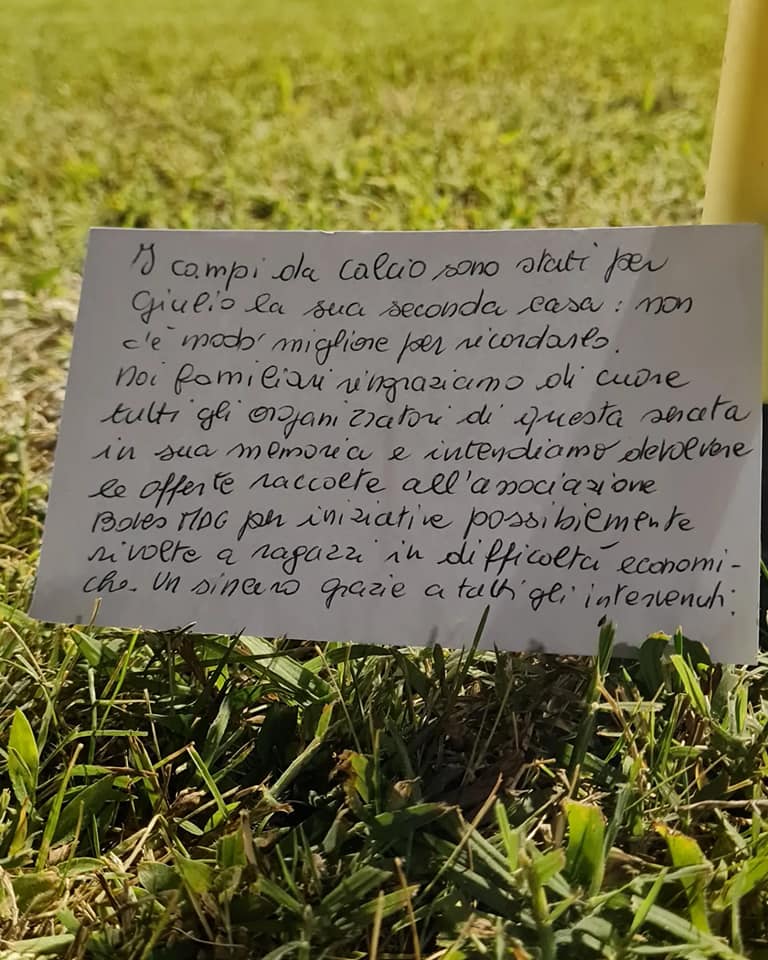 I campi da calcio sono stati per
Giulio la sua seconda casa: non
c'è modo migliore per ricordarlo.
Noi familiari ringraziamo di cuore
tutti gli organizzatori di questa serata
in sua memoria e intendiamo devolvere
le offerte raccolte all'associazione
MDG per iniziative possibilmente
rivolte a ragazzi in difficoltà economi-
che. Un sincero grazie a tutti gli intervenuti.